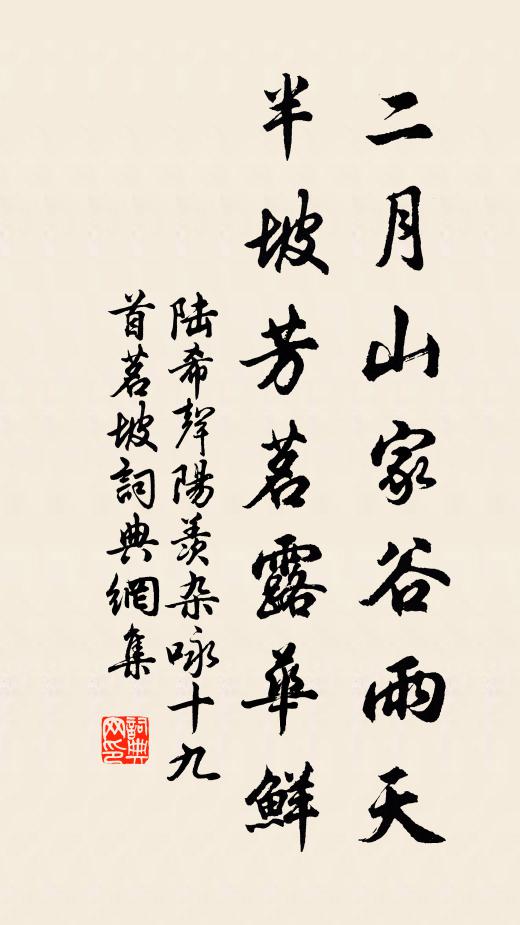 二月山家谷雨天
半坡芳茗露華鮮
陸希聲陽羨杂咏十九
首茗坡詞典網集
詞典網印